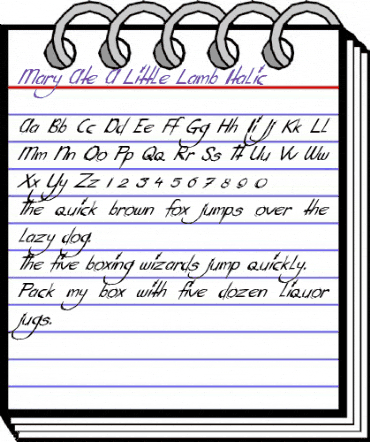 Mary Ate A Little Lamb Italic
Aa Bb Cc Dd Ee Ff Gg Hh Ii Jj Kk Ll
Mm Nn Oo Pp Qq Rr Ss Tt Uu Vv Ww
Xx Yy Zz 1 2 3 4 5 6 7 8 9 0
The quick brown fox jumps over the
lazy dog.
The five boxing wizards jump quickly.
Pack my box with five dozen liquor
jugs.